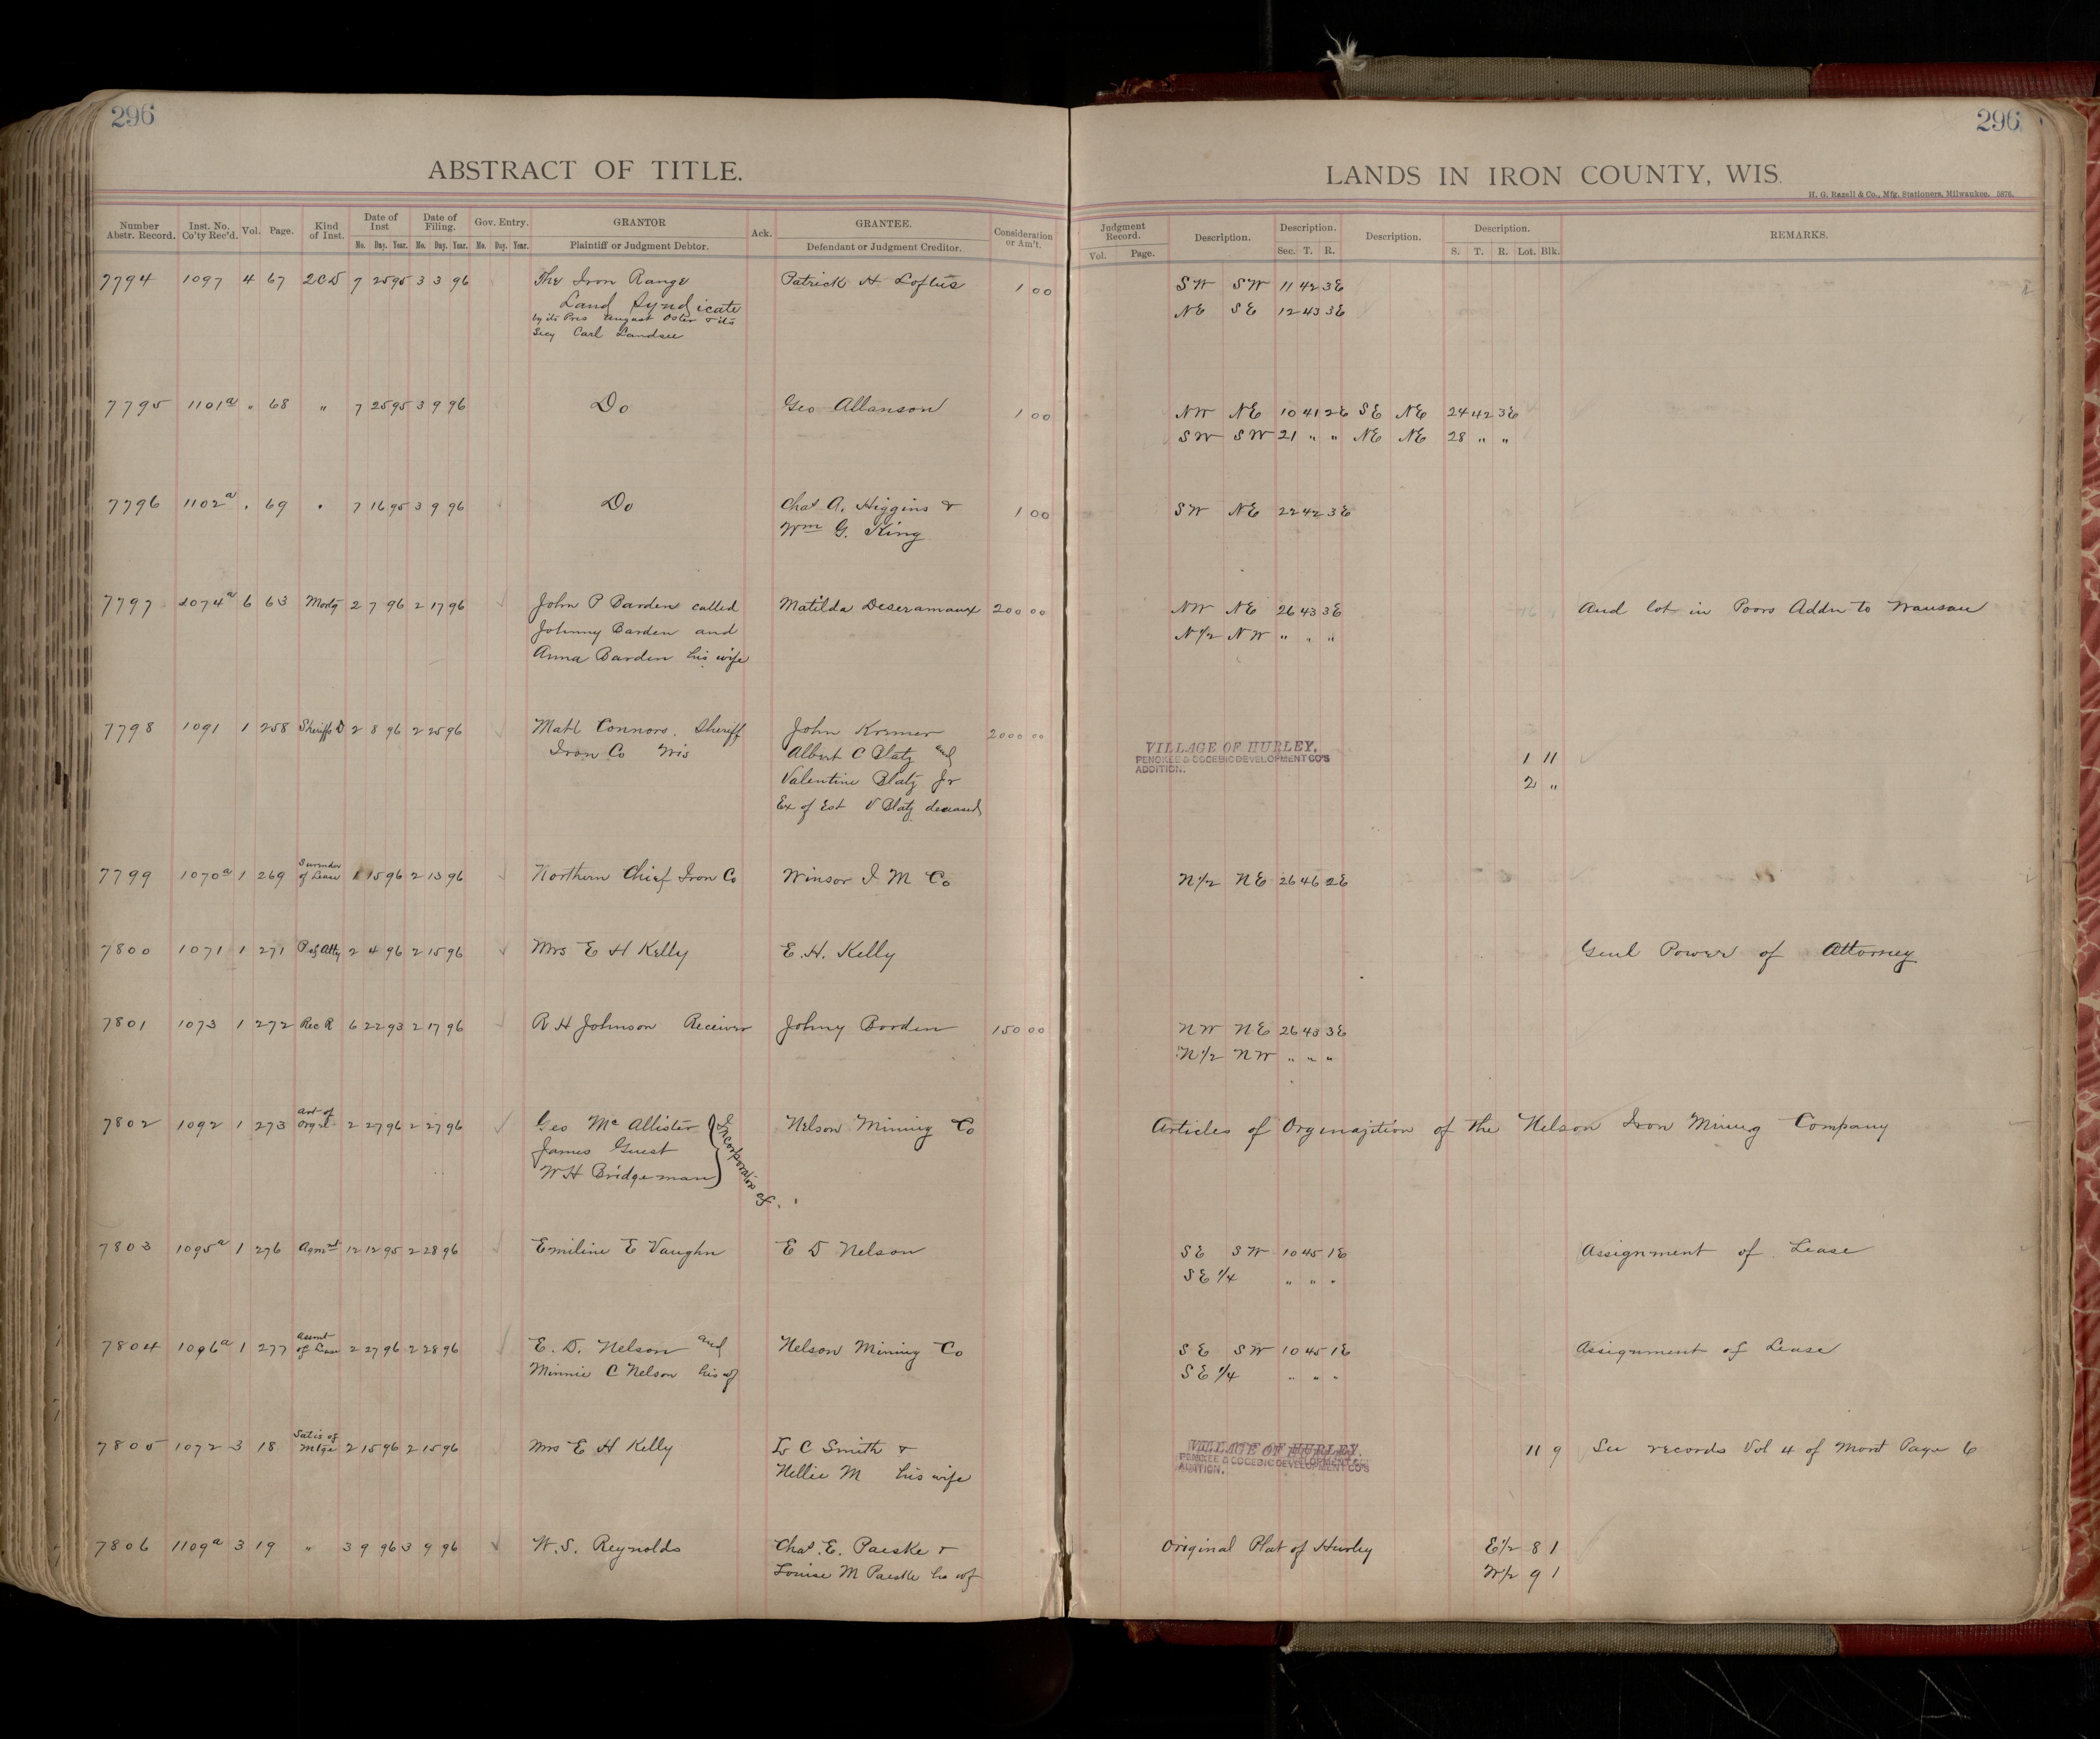 296
ABSTRACT OF TITLE.
296
LANDS IN IRON COUNTY, WIS.
H. G. Razall & Co., Mfg. Stationers, Milwaukee. 5876.
Number Abstr. Record. Inst. No. Co'ty Rec'd. Vol. Page. Kind of Inst. Date of Inst Mo. Day. Year. Date of Filing. Mo. Day. Year. Gov. Entry. Mo. Day. Year. GRANTOR Plaintiff or Judgment Debtor. Ack. GRANTEE. Defendant or Judgment Creditor. Consideration or Am't. Judgment Record. Vol. Page. Description. Description. Sec. T. R. Description. Description. S. T. R. Lot. Blk. REMARKS.
7794 1097 4 67 2CD 7 25 95 3 3 96 The Iron Range Patrick H Loftus 1 00 SW SW 11 42 3E
Land Syndicate NE SE 12 43 3E
by its Pres August Oster & its
Secy Carl Landsee
7795 1101a " 68 " 7 25 95 3 9 96 Do Geo Allanson 1 00 NW NE 10 41 2E SE NE 24 42 3E
SW SW 21 " " NE NE 28 " "
7796 1102a " 69 " 7 16 95 3 9 96 Do Chas A. Higgins & 1 00 SW NE 22 42 3E
Wm G. King
7797 1074a 6 63 Mortg 2 7 96 2 17 96 John P Barden called Matilda Deseramaux 200 00 NW NE 26 43 3E And lot in Poors Addn to Wausau
Johnny Barden and N1/2 NW " " "
Anna Barden his wife
7798 1091 1 258 Sheriffs D 2 8 96 2 25 96 Matt Connors. Sheriff John Kremer 2000 00 VILLAGE OF HURLEY. PENOKEE & GOGEBIC DEVELOPMENT CO'S ADDITION. 1 11
Iron Co Wis Albert C Blatz and 2 "
Valentine Blatz Jr
Ex of Est V Blatz deceased
7799 1070a 1 269 Surrender of Lease 1 15 96 2 13 96 Northern Chief Iron Co Winsor I M Co N1/2 NE 26 46 2E
7800 1071 1 271 P of Atty 2 4 96 2 15 96 Mrs E H Kelly E. H. Kelly Genl Power of Attorney
7801 1073 1 272 Rec R 6 22 93 2 17 96 R H Johnson Receiver Johny Borden 150 00 NW NE 26 43 3E
N1/2 NW " " "
7802 1092 1 273 Art of Orgzt 2 27 96 2 27 96 Geo McAllister Incorporators of Nelson Mining Co Articles of Orgenajition of the Nelson Iron Mining Company
James Guest
W H Bridgeman
7803 1095a 1 276 Agmnt 12 12 95 2 28 96 Emiline E Vaughn E D Nelson SE SW 10 45 1E Assignment of Lease
SE 1/4 " " "
7804 1096a 1 277 Assmt of Lease 2 27 96 2 28 96 E. D. Nelson and Nelson Mining Co SE SW 10 45 1E Assignment of Lease
Minnie C Nelson his wf SE 1/4 " " "
7805 1072 3 18 Satis of Mtge 2 15 96 2 15 96 Mrs E H Kelly L C Smith & VILLAGE OF HURLEY. PENOKEE & GOGEBIC DEVELOPMENT CO'S ADDITION. 11 9 See records Vol 4 of Mort Page 6
Nellie M his wife
7806 1109a 3 19 " 3 9 96 3 9 96 W. S. Reynolds Chas. E. Paeske & Original Plat of Hurley E1/2 8 1
Louise M Paeske his wf W1/2 9 1